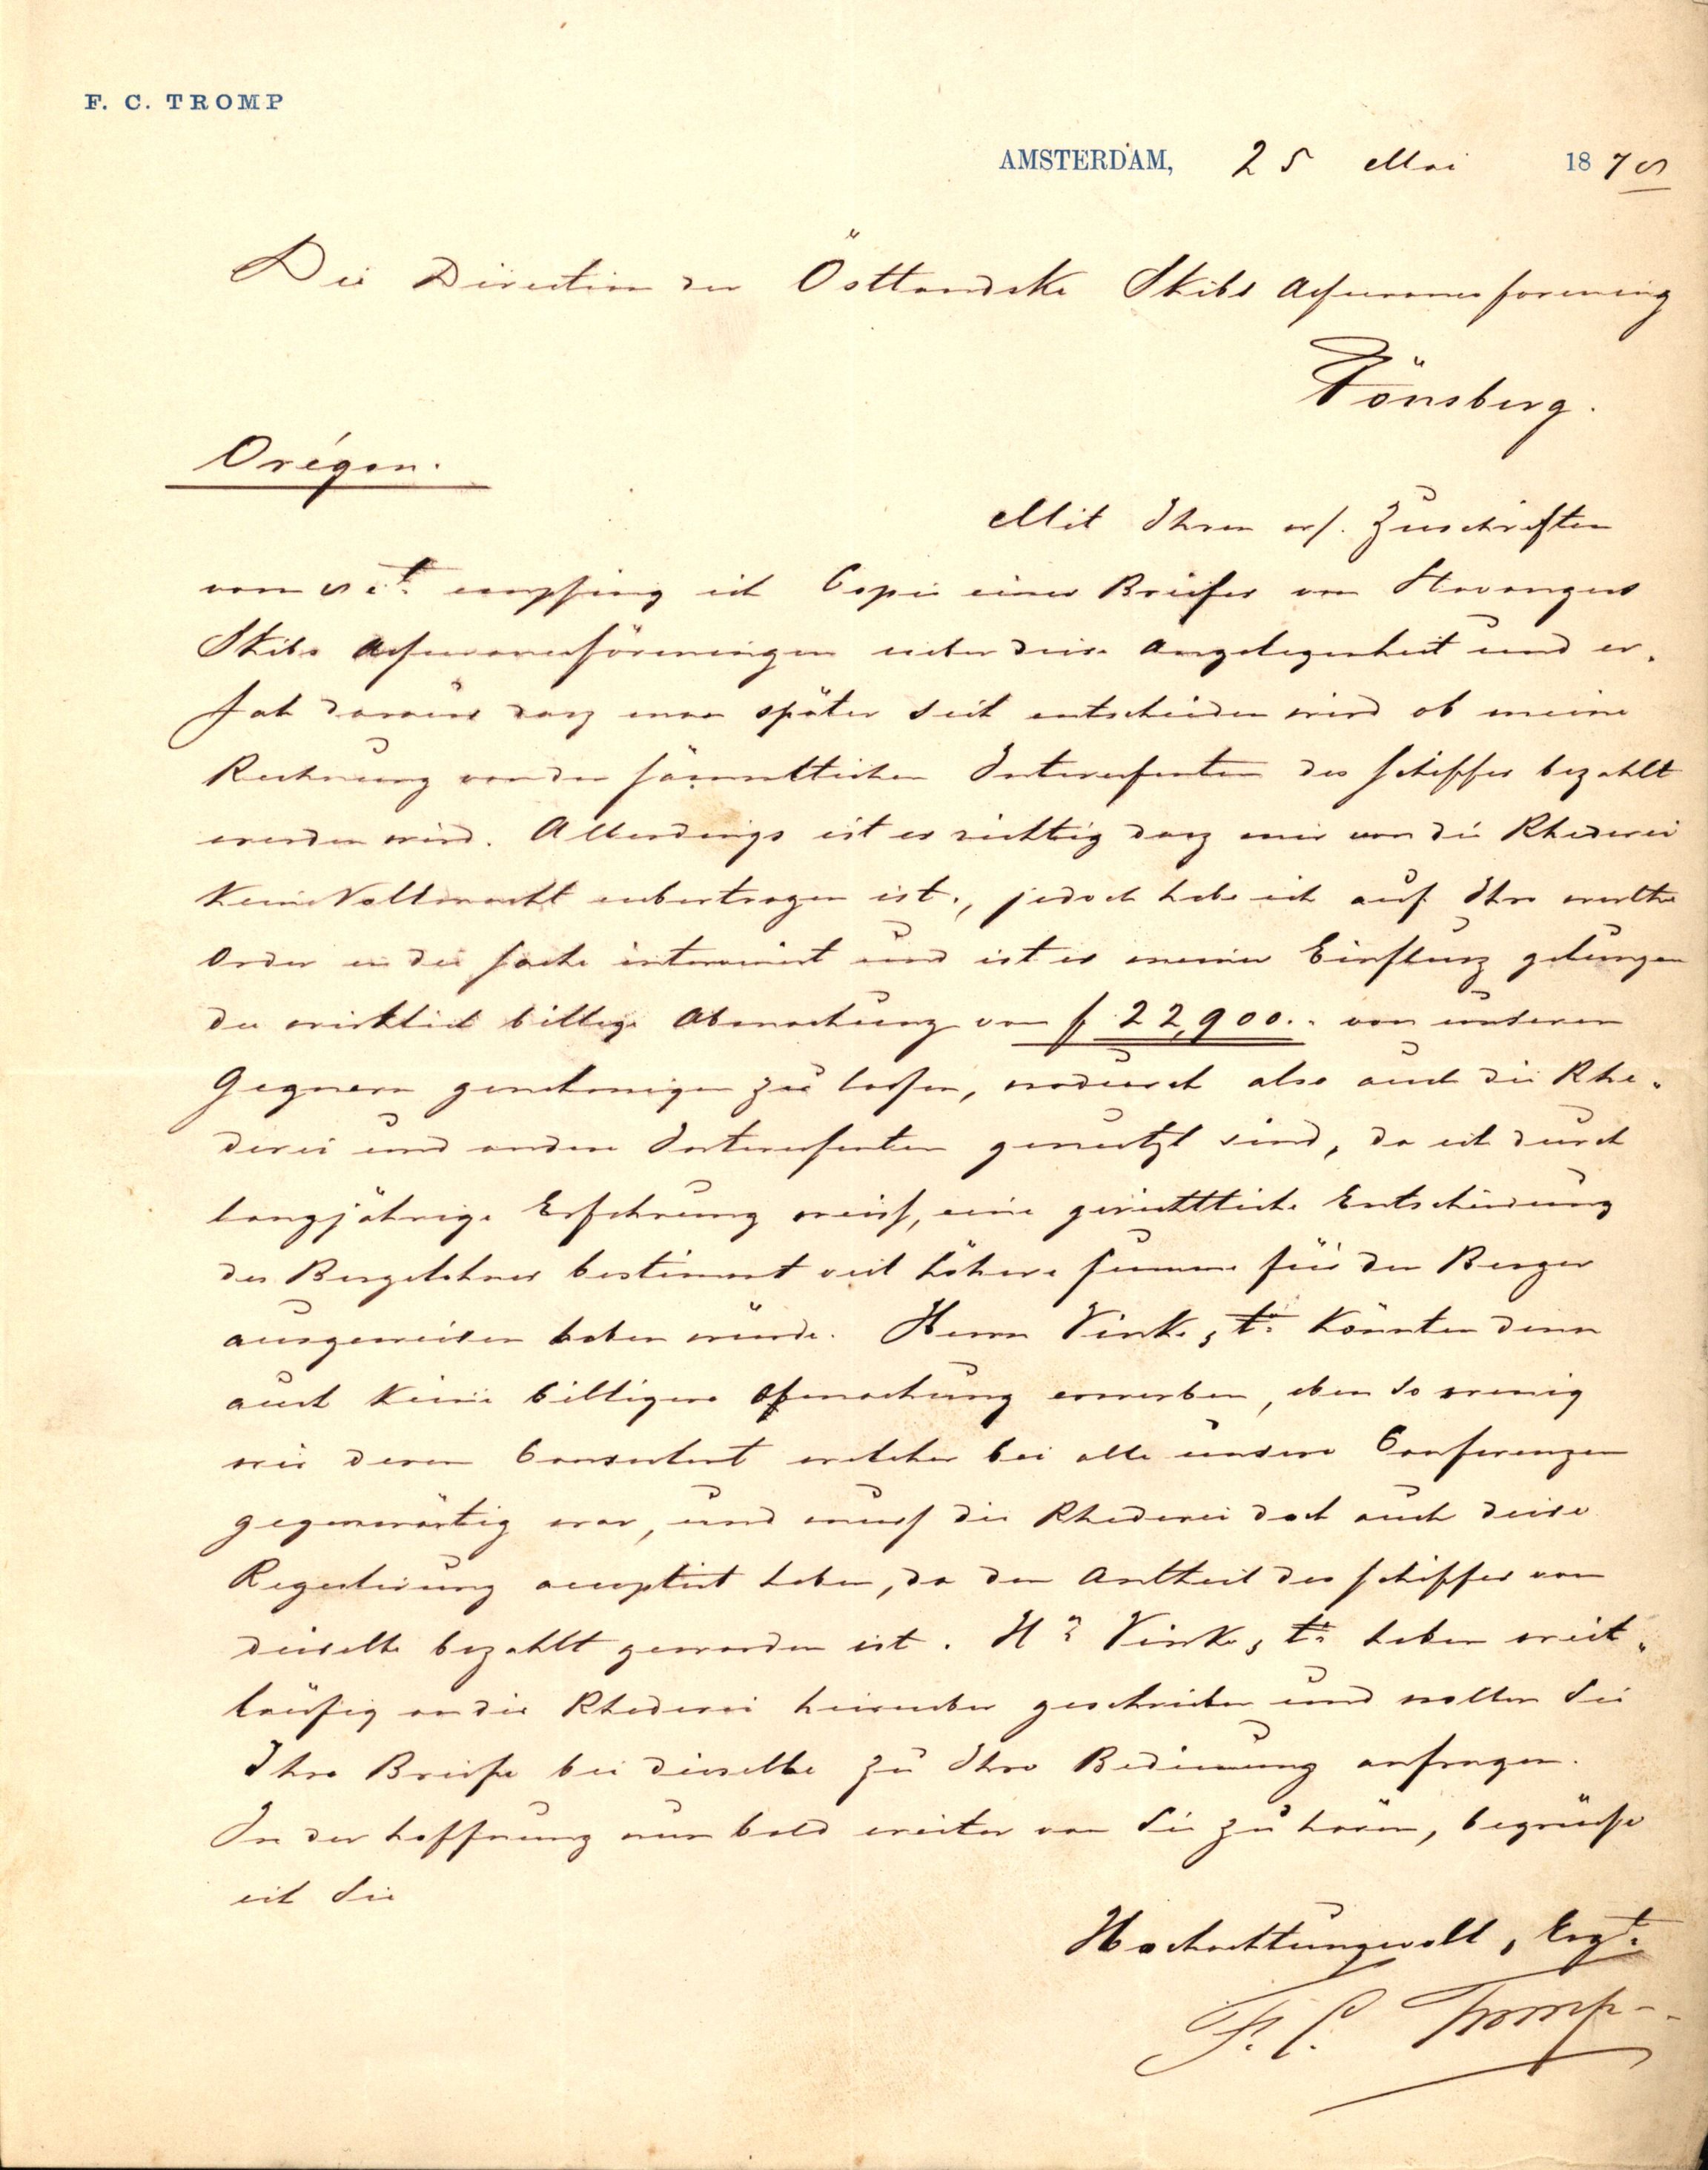 F. C. TROMP
AMSTERDAM, 25 Mai 1878
Die Direction der Östlandske Skibs Assuranceforening
Tönsberg.
Orégon.
Mit Ihren Zuschriften
vom 8 ct. empfing ich Copie eines Briefes von Stavangers
Skibs Assuranceföreningen ueber diese Angelegenheit und er„
sah daraus dasz man später seit entscheiden wird ob meine
Rechnung von den sämmtlichen Interessenten des Schiffes bezahlt
werden wird. Allerdings ist es richtig dasz mir von die Rhederei
keine Vollmacht uebertragen ist., jedoch habe ich auf Ihre werthe
Order in der Sache intervenirt und ist es meiner Einflusz gelungen
die wirklich billige Abmachung von f 22,900.. von unseren
Gegnern genehmigen zu lassen, wodurch also auch die Rhe„
derei und andere Interessenten genutzt sind, da ich durch
langjährige Erfahrung weiss, eine gerichtliche Entscheidung
des Bergelohnes bestimmt viel höhere Summe für den Berger
ausgewiesen haben würde. Herrn Vinke & Co. könnten denn
auch keine billigere Abmachung erwerben, eben so wenig
wie deren Consulent welcher bei alle unsere Conferenzen
gegenwärtig war, und muss die Rhederei doch auch diese
Regulirung acceptirt haben, da den Antheil des Schiffes von
dieselbe bezahlt geworden ist. Hn Vinke & Co. haben weit„
läufig an die Rhederei hierueber geschrieben und wollen Sie
Ihre Briefe bei dieselbe zu Ihre Bedienung anfragen.
In der Hoffnung nun bald weiter von Sie zu hören, begrüsse
ich Sie
Hochachtungsvoll, Ergt.
F. C. Tromp